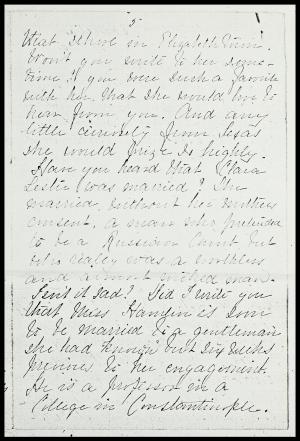 5
that school in Elizabeth
Won't you write to her some-
time? you were such a favorite
with her, that she would love to
hear from you. And any
little curiosity from Texas
she would prize so highly.
Have you heard that Clara
Leslie was married? She
married, without her mothers
consent, a man who pretended
to be a Russian Count but
who really was a worthless
and a most wicked man.
Isn't it sad? Did I write you
that Miss Hamlin is soon
to be married to a gentleman
she had known but six weeks
previous to her engagement.
He is a professor in a
College in Constantinople.